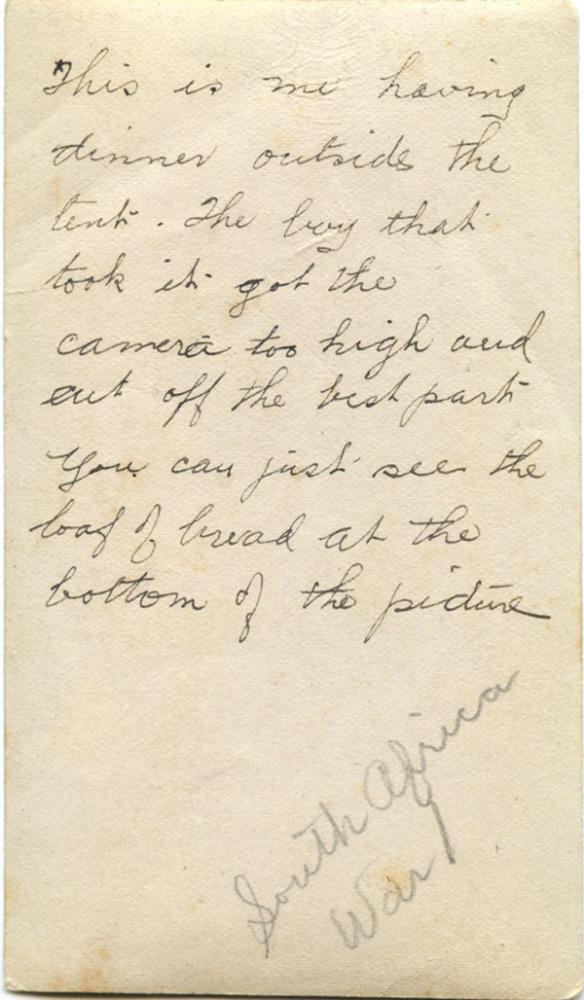 This is me having
dinner outside the
tent. The boy that
took it got the
camera too high and
cut off the best part
You can just see the
loaf of bread at the
bottom of the picture
South Africa
War